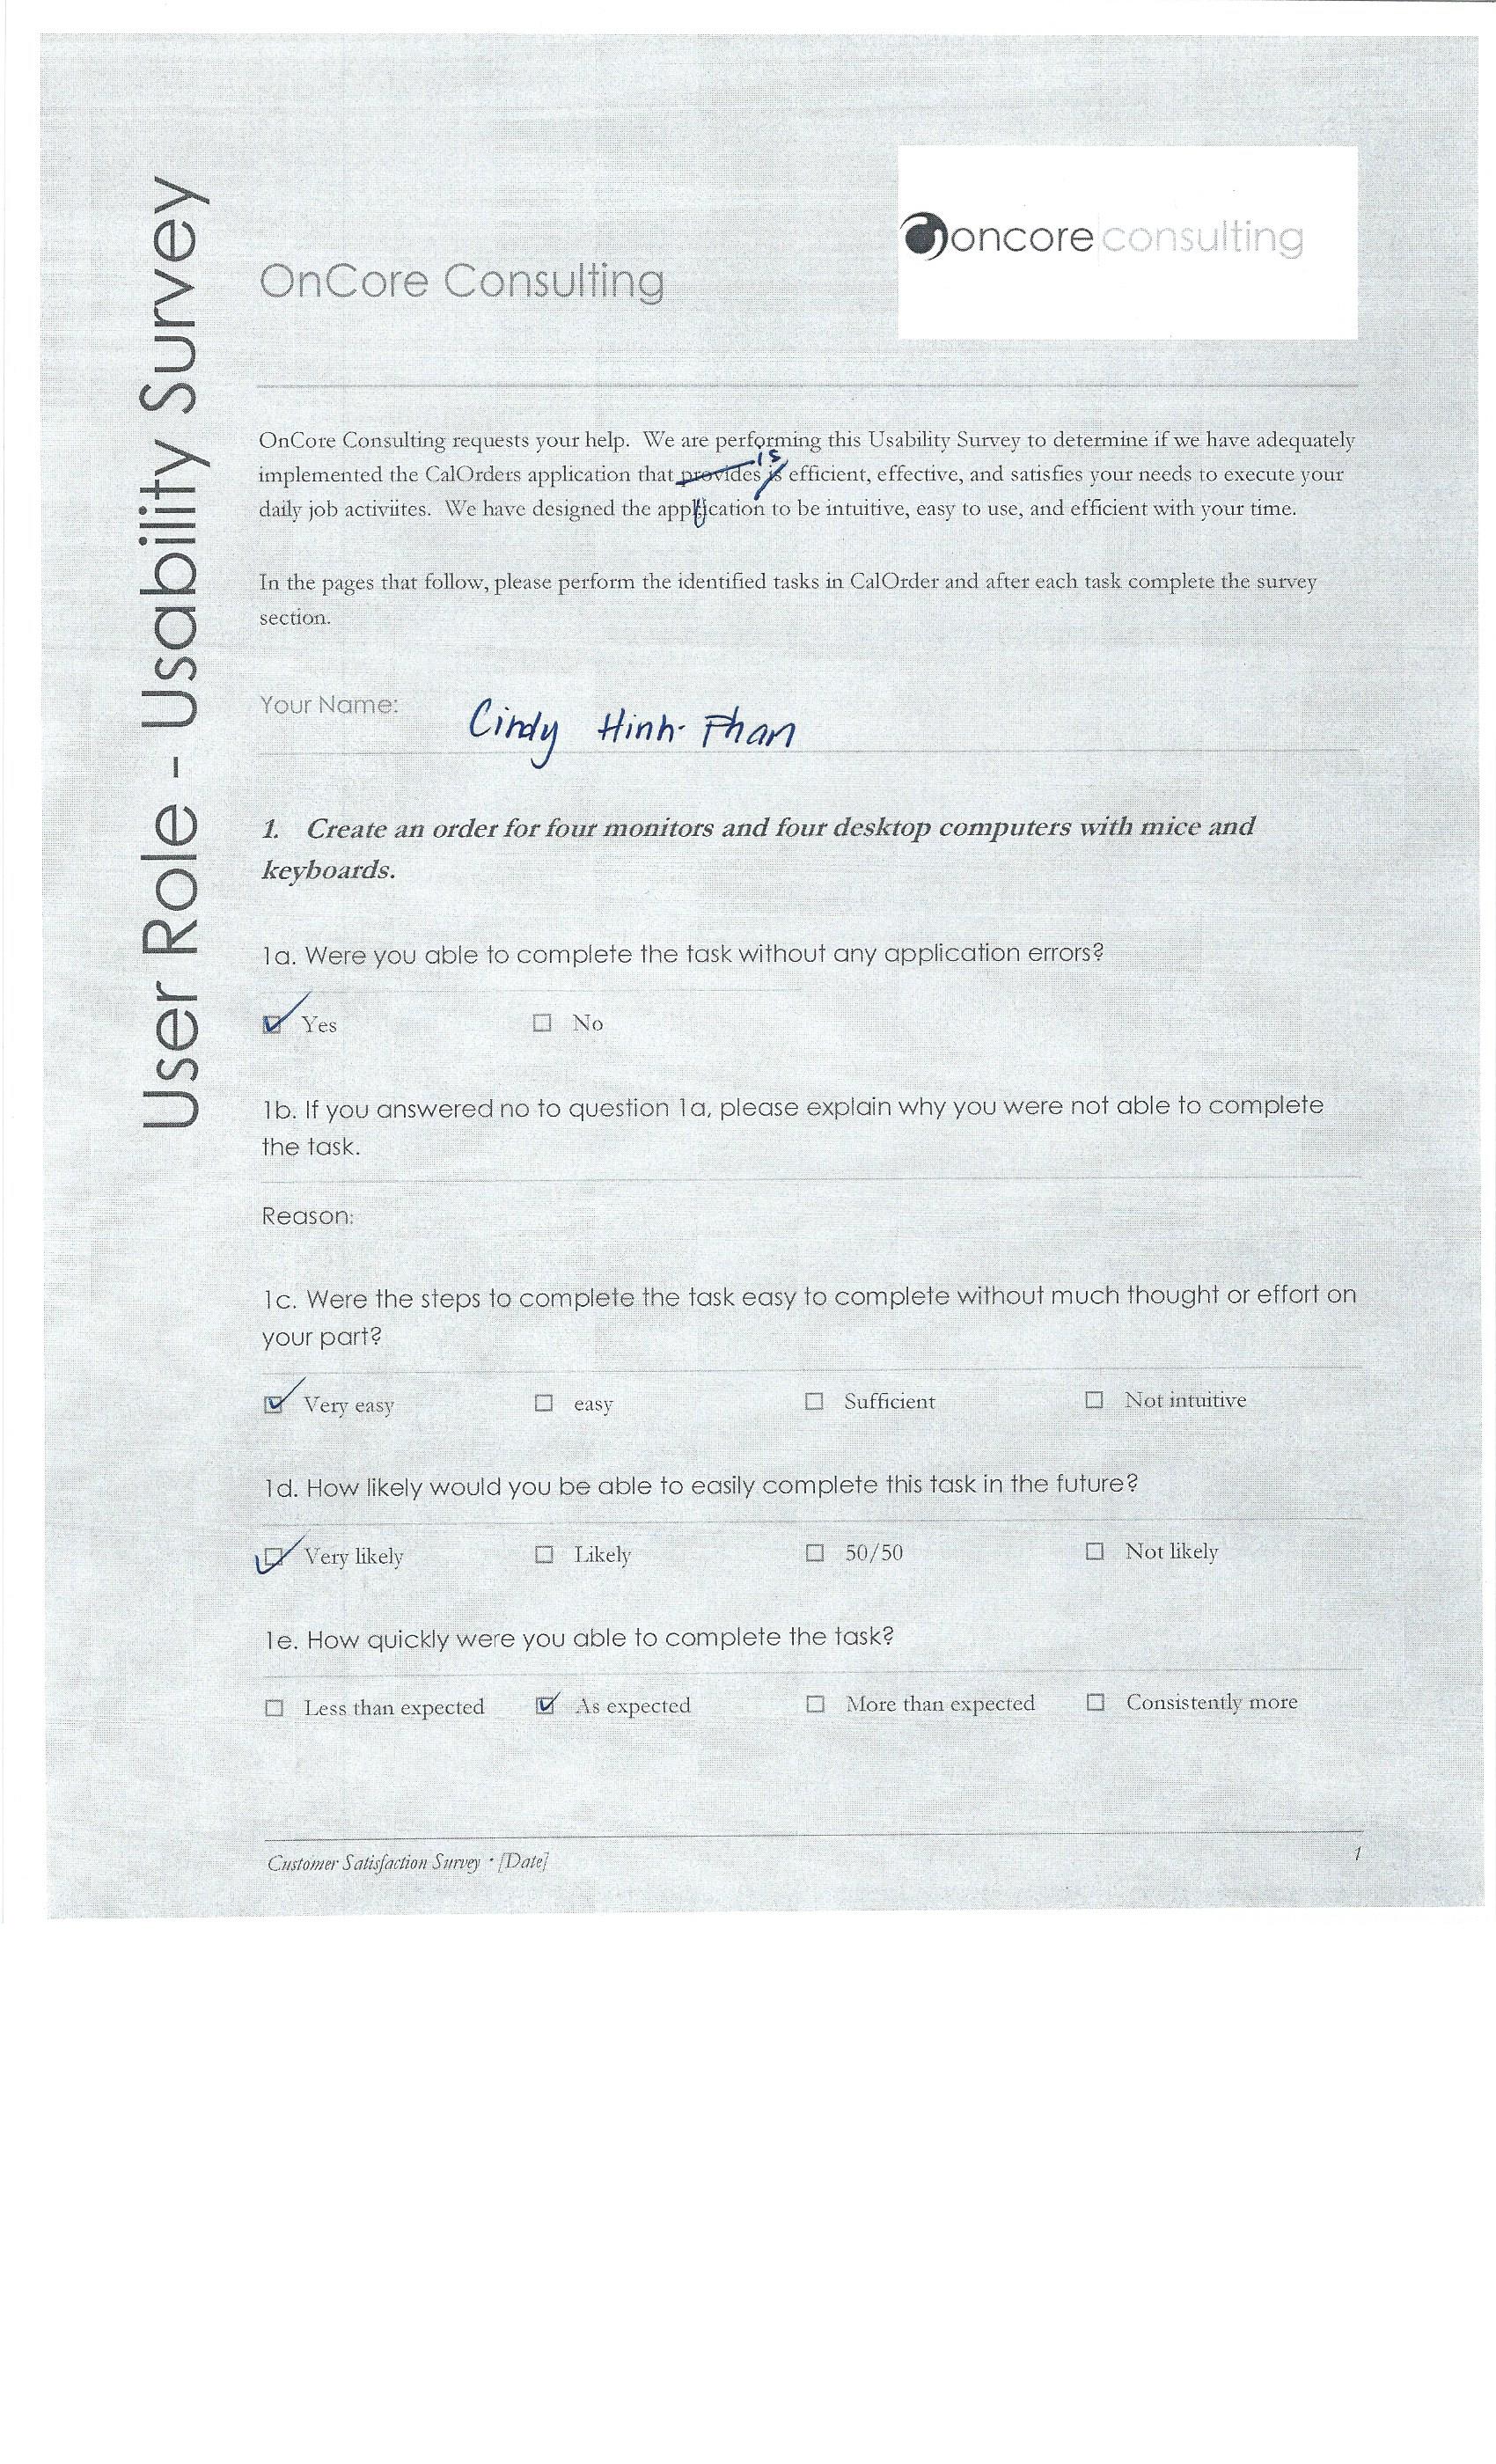 User Role - Usability Survey
oncore consulting
OnCore Consulting
OnCore Consulting requests your help. We are performing this Usability Survey to determine if we have adequately
is
implemented the CalOrders application that provides is efficient, effective, and satisfies your needs to execute your
daily job activiites. We have designed the application to be intuitive, easy to use, and efficient with your time.
In the pages that follow, please perform the identified tasks in CalOrder and after each task complete the survey
section.
Your Name: Cindy Hinh-Phan
1. Create an order for four monitors and four desktop computers with mice and
keyboards.
1a. Were you able to complete the task without any application errors?
☑ Yes ☐ No
1b. If you answered no to question 1a, please explain why you were not able to complete
the task.
Reason:
1c. Were the steps to complete the task easy to complete without much thought or effort on
your part?
☑ Very easy ☐ easy ☐ Sufficient ☐ Not intuitive
1d. How likely would you be able to easily complete this task in the future?
☑ Very likely ☐ Likely ☐ 50/50 ☐ Not likely
1e. How quickly were you able to complete the task?
☐ Less than expected ☑ As expected ☐ More than expected ☐ Consistently more
Customer Satisfaction Survey · [Date] 1